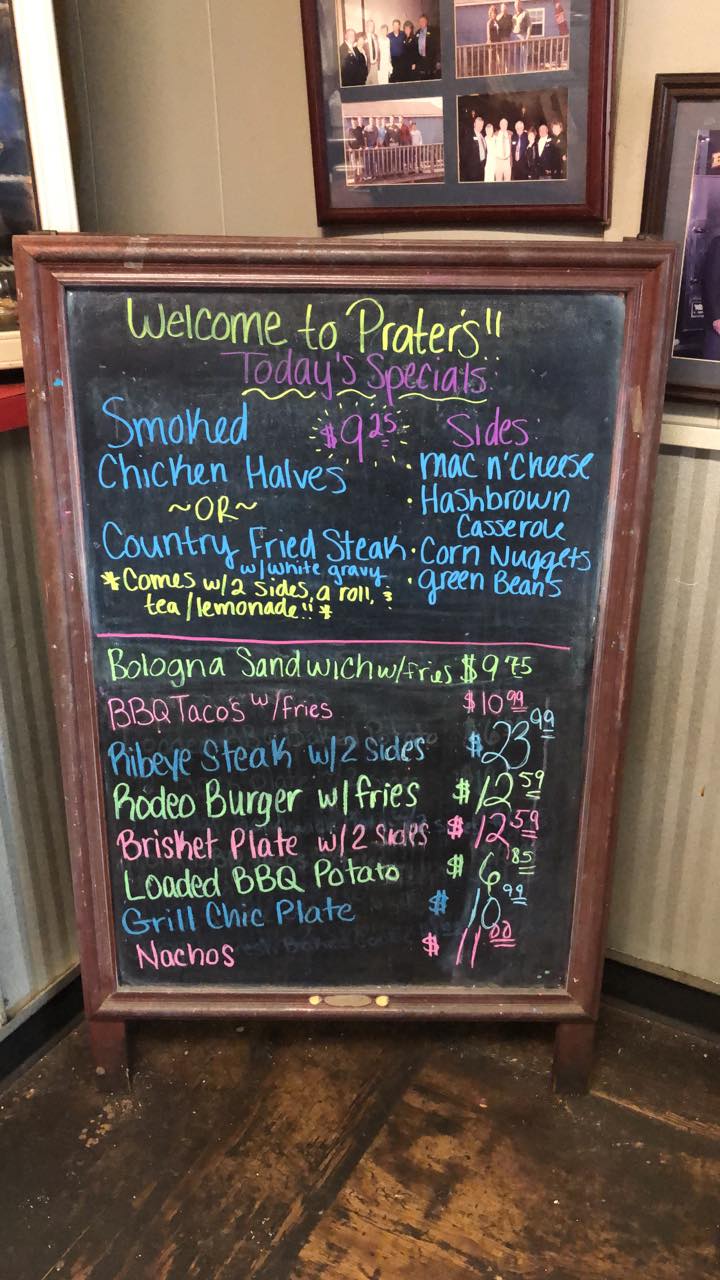 Welcome to Prater's!!
Today's Specials:
Smoked
Chicken Halves
~OR~
Country Fried Steak
w/white gravy
*Comes w/2 sides, a roll, &
tea/lemonade!! *
$9.25
Sides:
• mac n' cheese
• Hashbrown
Casserole
• Corn Nuggets
• green Beans
Bologna Sandwich w/fries $9.75
BBQ Tacos w/fries $10.99
Ribeye Steak w/2 sides $23.99
Rodeo Burger w/fries $12.59
Brisket Plate w/2 sides $12.59
Loaded BBQ Potato $6.85
Grill Chic Plate $10.99
Nachos $11.00